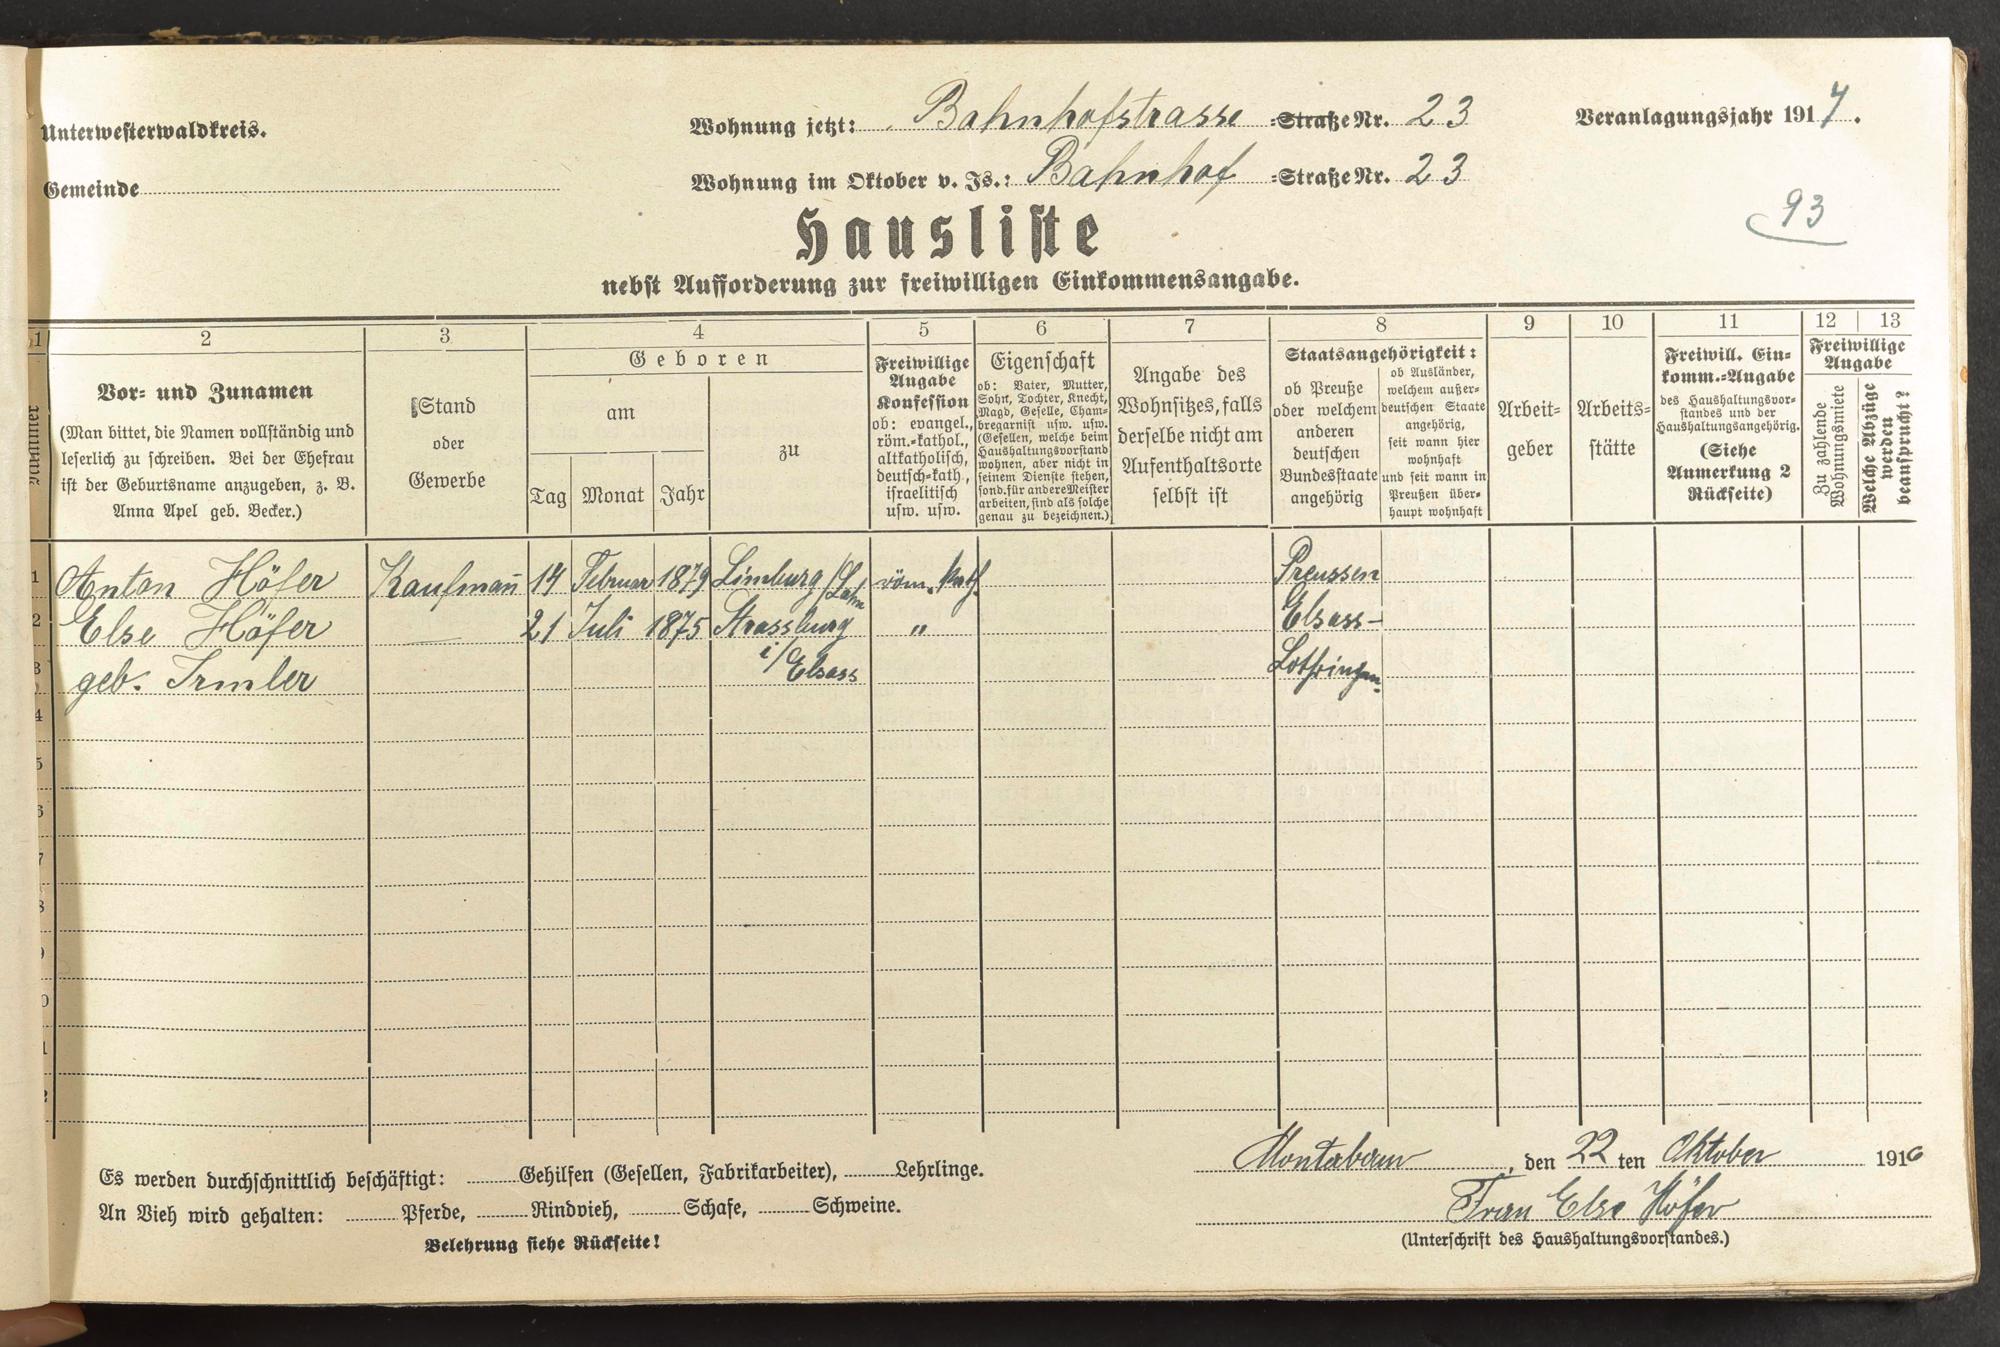 Unterwesterwaldkreis.
Wohnung jetzt: Bahnhofstrasse =Straße Nr. 23
Veranlagungsjahr 1917.
Gemeinde
Wohnung im Oktober v. Js.: Bahnhof =Straße Nr. 23
93
Hausliste
nebst Aufforderung zur freiwilligen Einkommensangabe.
1 2 3 4 5 6 7 8 9 10 11 12 13
Nummer
Vor= und Zunamen
(Man bittet, die Namen vollständig und
leserlich zu schreiben. Bei der Ehefrau
ist der Geburtsname anzugeben, z. B.
Anna Apel geb. Becker.)
Stand
oder
Gewerbe
Geboren
am
Tag Monat Jahr
zu
Freiwillige
Angabe
Konfession
ob: evangel.,
röm.=kathol.,
altkatholisch,
deutsch=kath.,
israelitisch
usw. usw.
Eigenschaft
ob: Vater, Mutter,
Sohn, Tochter, Knecht,
Magd, Geselle, Cham=
bregarnist usw. usw.
(Gesellen, welche beim
Haushaltungsvorstand
wohnen, aber nicht in
seinem Dienste stehen,
sond. für andere Meister
arbeiten, sind als solche
genau zu bezeichnen.)
Angabe des
Wohnsitzes, falls
derselbe nicht am
Aufenthaltsorte
selbst ist
Staatsangehörigkeit:
ob Preuße
oder welchem
anderen
deutschen
Bundesstaate
angehörig
ob Ausländer,
welchem außer=
deutschen Staate
angehörig,
seit wann hier
wohnhaft
und seit wann in
Preußen über=
haupt wohnhaft
Arbeit=
geber
Arbeits=
stätte
Freiwill. Ein=
komm.=Angabe
des Haushaltungsvor=
standes und der
Haushaltungsangehörig.
(Siehe
Anmerkung 2
Rückseite)
Freiwillige
Angabe
Zu zahlende
Wohnungsmiete
Welche Abzüge
werden
beansprucht?
1 Anton Höfer Kaufmañ 14 Februar 1879 Limburg /Lahn röm. kath. Preussen
2 Else Höfer — 21 Juli 1875 Strassburg " Elsass-
3 geb. Irmler i/Elsass Lothringen
4
5
6
7
8
9
0
1
2
Es werden durchschnittlich beschäftigt: Gehilfen (Gesellen, Fabrikarbeiter), Lehrlinge.
An Vieh wird gehalten: Pferde, Rindvieh, Schafe, Schweine.
Belehrung siehe Rückseite!
Montabaur, den 22 ten Oktober 1916
Frau Else Höfer
(Unterschrift des Haushaltungsvorstandes.)